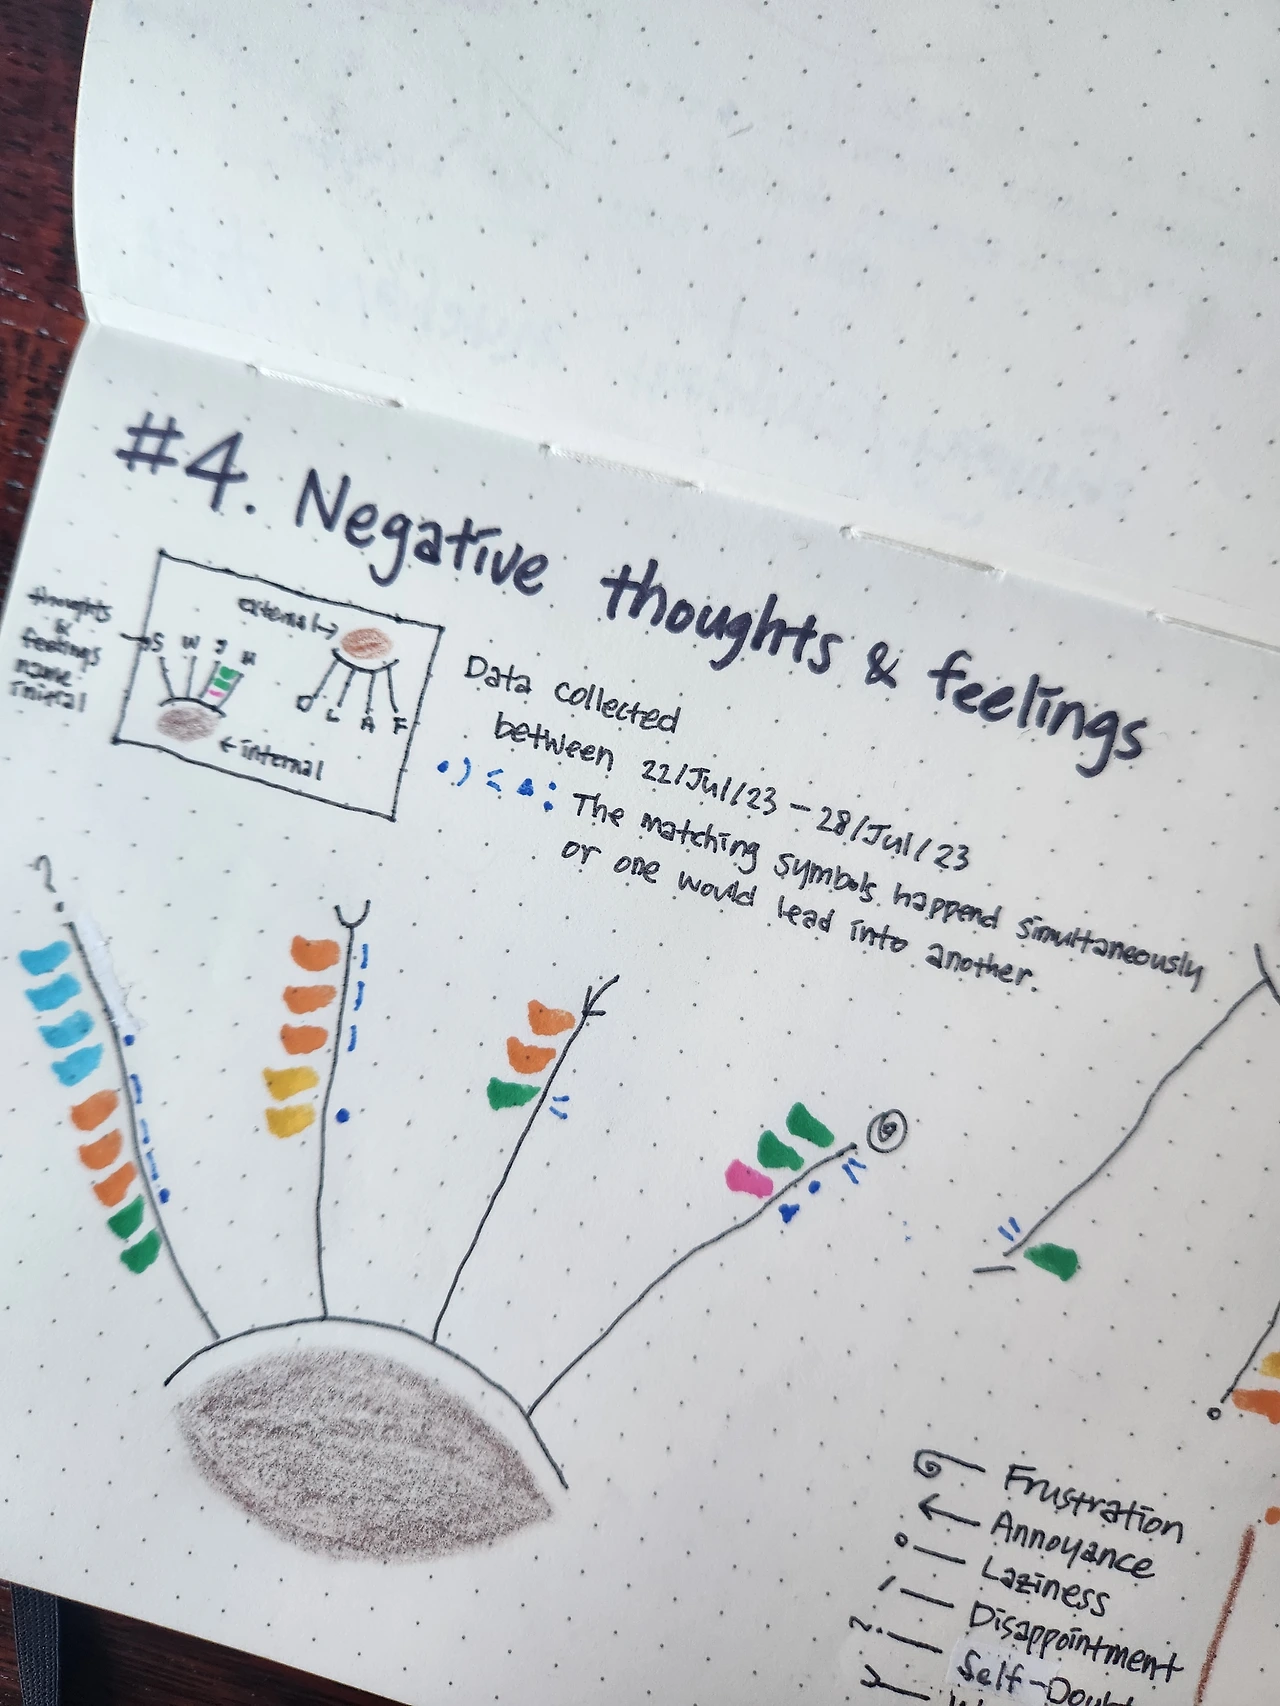 #4. Negative thoughts & feelings
thoughts
&
feelings
name
initial
S W J
external →
L A F
← internal
Data collected
between 22/Jul/23 – 28/Jul/23
: The matching symbols happend simultaneously
or one would lead into another.
?
Frustration
Annoyance
Laziness
Disappointment
Self-Doubt